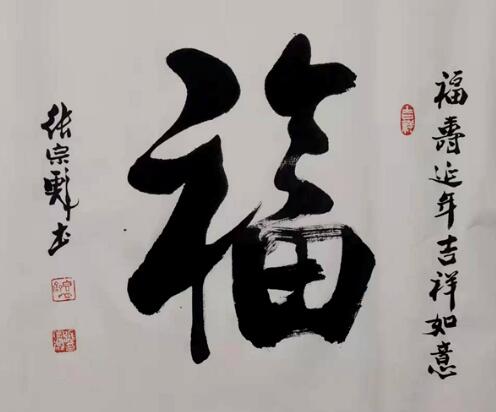 福寿延年吉祥如意
福
张宗彪书